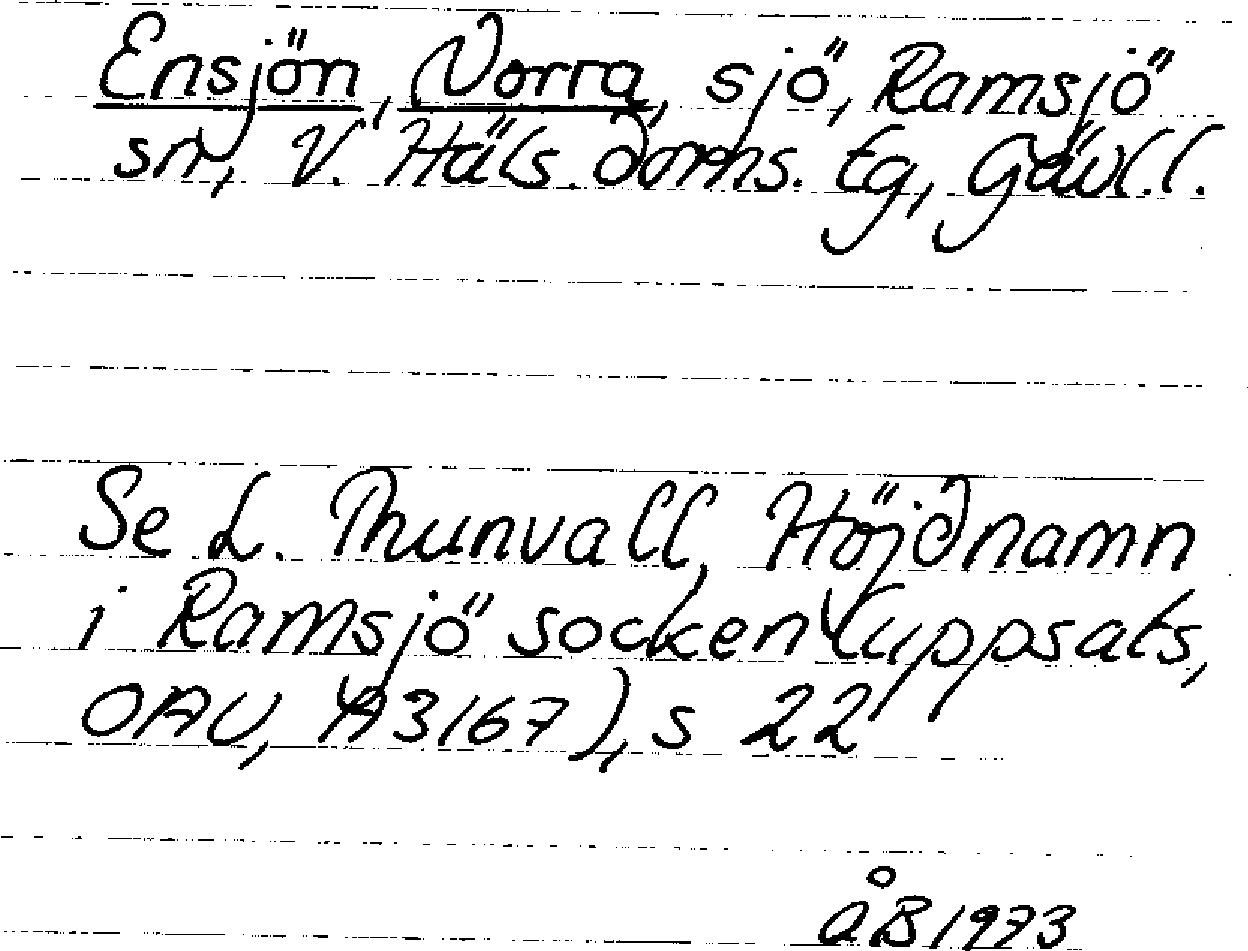 Ensjön, Norra, sjö, Ramsjö
sn, V. Häls. doms. tg, Gävl.l.
Se L. Thunvall, Höjdnamn
i Ramsjö socken (uppsats,
OAU, A3167), s 22
ÅB 1973